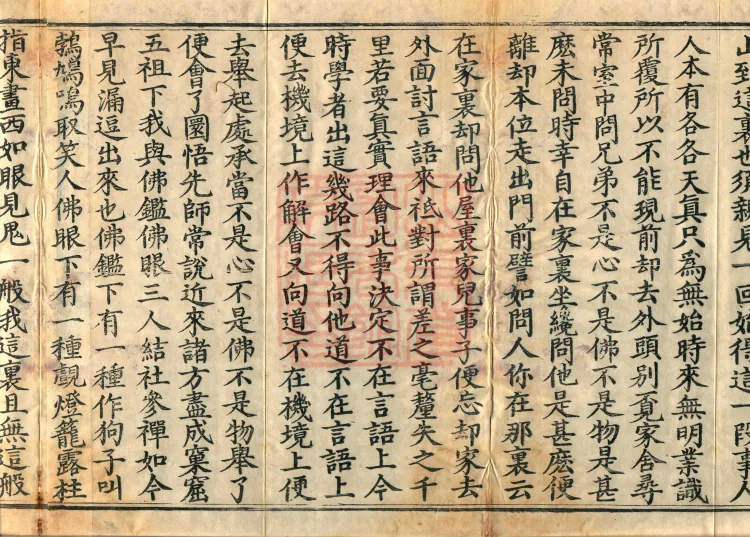 山至這裏也須親見一回始得這一段事人
人本有各各天真只為無始時來無明業識
所覆所以不能現前却去外頭別覓家舍尋
常室中問兄弟不是心不是佛不是物是甚
麼未問時幸自在家裏坐纔問他是甚麼便
離却本位走出門前譬如問人你在那裏云
在家裏却問他屋裏家兒事子便忘却家去
外面討言語來祗對所謂差之毫釐失之千
里若要真實理會此事決定不在言語上今
時學者出這幾路不得向他道不在言語上
便去機境上作解會又向道不在機境上便
去舉起處承當不是心不是佛不是物舉了
便會了圜悟先師常說近來諸方盡成窠窟
五祖下我與佛鑑佛眼三人結社參禪如今
早見漏逗出來也佛鑑下有一種作狗子叫
鵓鳩鳴取笑人佛眼下有一種覷燈籠露柱
指東畫西如眼見鬼一般我這裏且無這般